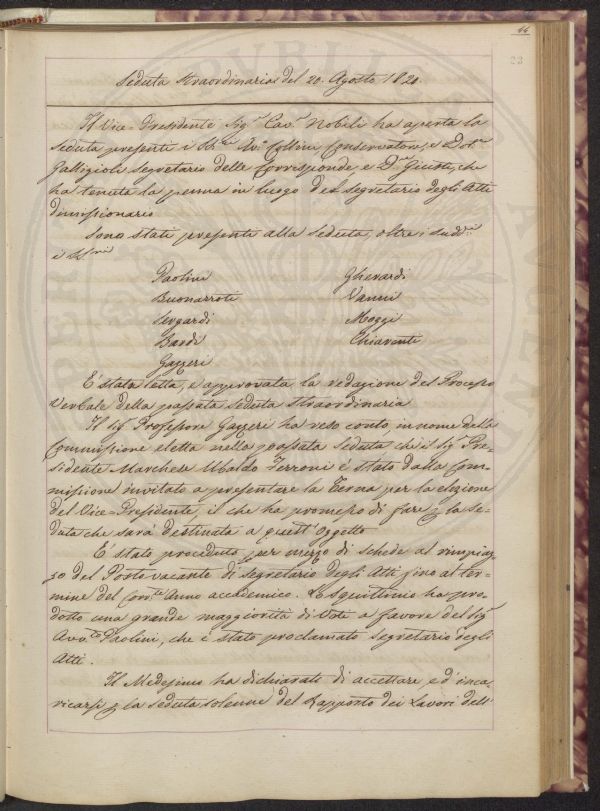 44
23
Seduta straordinaria del 20. Agosto 1820.
Il Vice-Presidente Sig.r Cav.r Nobili ha aperta la
seduta presenti i SS.ri Av.o Collini Conservatore, e Dot.r
Gallizioli Segretario delle Corrisponde, e D.r Giusti, che
ha tenuta la penna in luogo del Segretario degli Atti
dimissionario
Sono stati presenti alla seduta, oltre i sudd.i
i SS.ri
Paolini Gherardi
Buonarroti Vanni
Sergardi Moggi
Bardi Chiarenti
Gazzeri
È stata letta, e approvata la redazione del Processo
Verbale della passata seduta straordinaria
Il sig.r Professore Gazzeri ha reso conto, in nome della
Commissione eletta nella passata seduta che il Sig.r Pre-
sidente Marchese Ubaldo Ferroni è stato dalla Com-
missione invitato a presentare la Terna per la elezione
del Vice-Presidente, il che ha promesso di fare p la se-
duta che sarà destinata a quest'oggetto
È stato proceduto per mezzo di schede al rimpiaz-
zo del Posto vacante di Segretario degli Atti fino al ter-
mine del Corr.te Anno accademico. Lo squittinio ha pro-
dotto una grande maggiorità di Voti a favore del Sig.r
Avv.to Paolini, che è stato proclamato Segretario degli
Atti.
Il Medesimo ha dichiarato di accettare, e d'inca-
ricarsi p la seduta solenne del Rapporto dei Lavori dell'